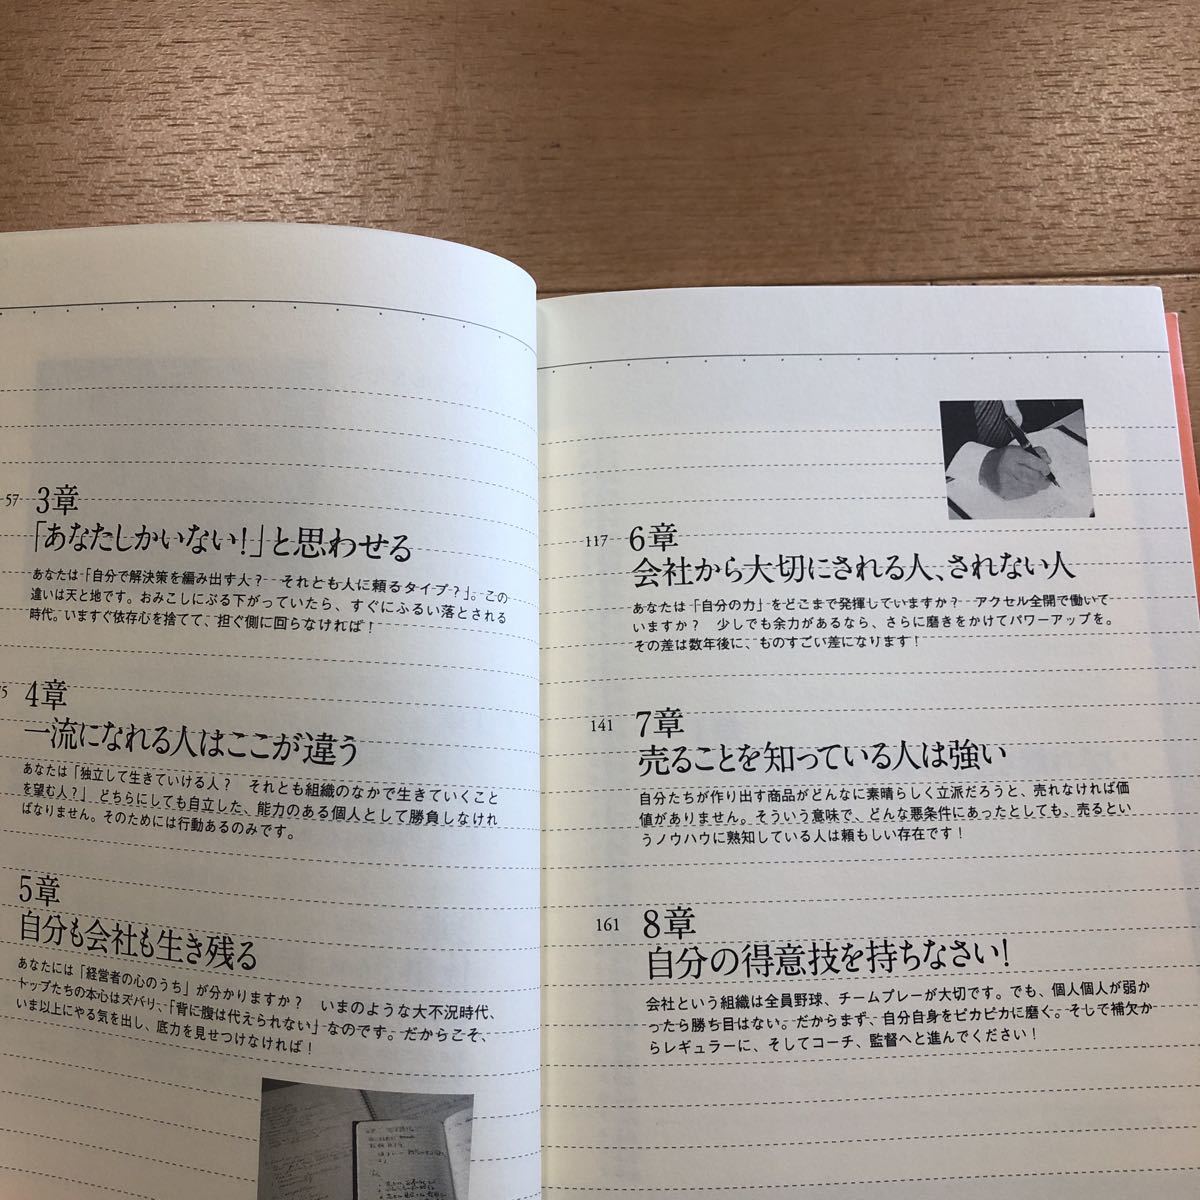 57
3章
「あなたしかいない!」と思わせる
あなたは「自分で解決策を編み出す人?　それとも人に頼るタイプ?」。この
違いは天と地です。おみこしにぶる下がっていたら、すぐにふるい落とされる
時代。いますぐ依存心を捨てて、担ぐ側に回らなければ!
75
4章
一流になれる人はここが違う
あなたは「独立して生きていける人?　それとも組織のなかで生きていくこと
を望む人?」 どちらにしても自立した、能力のある個人として勝負しなけれ
ばなりません。そのためには行動あるのみです。
5章
自分も会社も生き残る
あなたには「経営者の心のうち」が分かりますか?　いまのような大不況時代、
トップたちの本心はズバリ、「背に腹は代えられない」なのです。だからこそ、
いま以上にやる気を出し、底力を見せつけなければ!
117
6章
会社から大切にされる人、されない人
あなたは「自分の力」をどこまで発揮していますか?　アクセル全開で働いて
いますか?　少しでも余力があるなら、さらに磨きをかけてパワーアップを。
その差は数年後に、ものすごい差になります!
141
7章
売ることを知っている人は強い
自分たちが作り出す商品がどんなに素晴らしく立派だろうと、売れなければ価
値がありません。そういう意味で、どんな悪条件にあったとしても、売るとい
うノウハウに熟知している人は頼もしい存在です!
161
8章
自分の得意技を持ちなさい!
会社という組織は全員野球、チームプレーが大切です。でも、個人個人が弱か
ったら勝ち目はない。だからまず、自分自身をピカピカに磨ぐ。そして補欠か
らレギュラーに、そしてコーチ、監督へと進んでください!